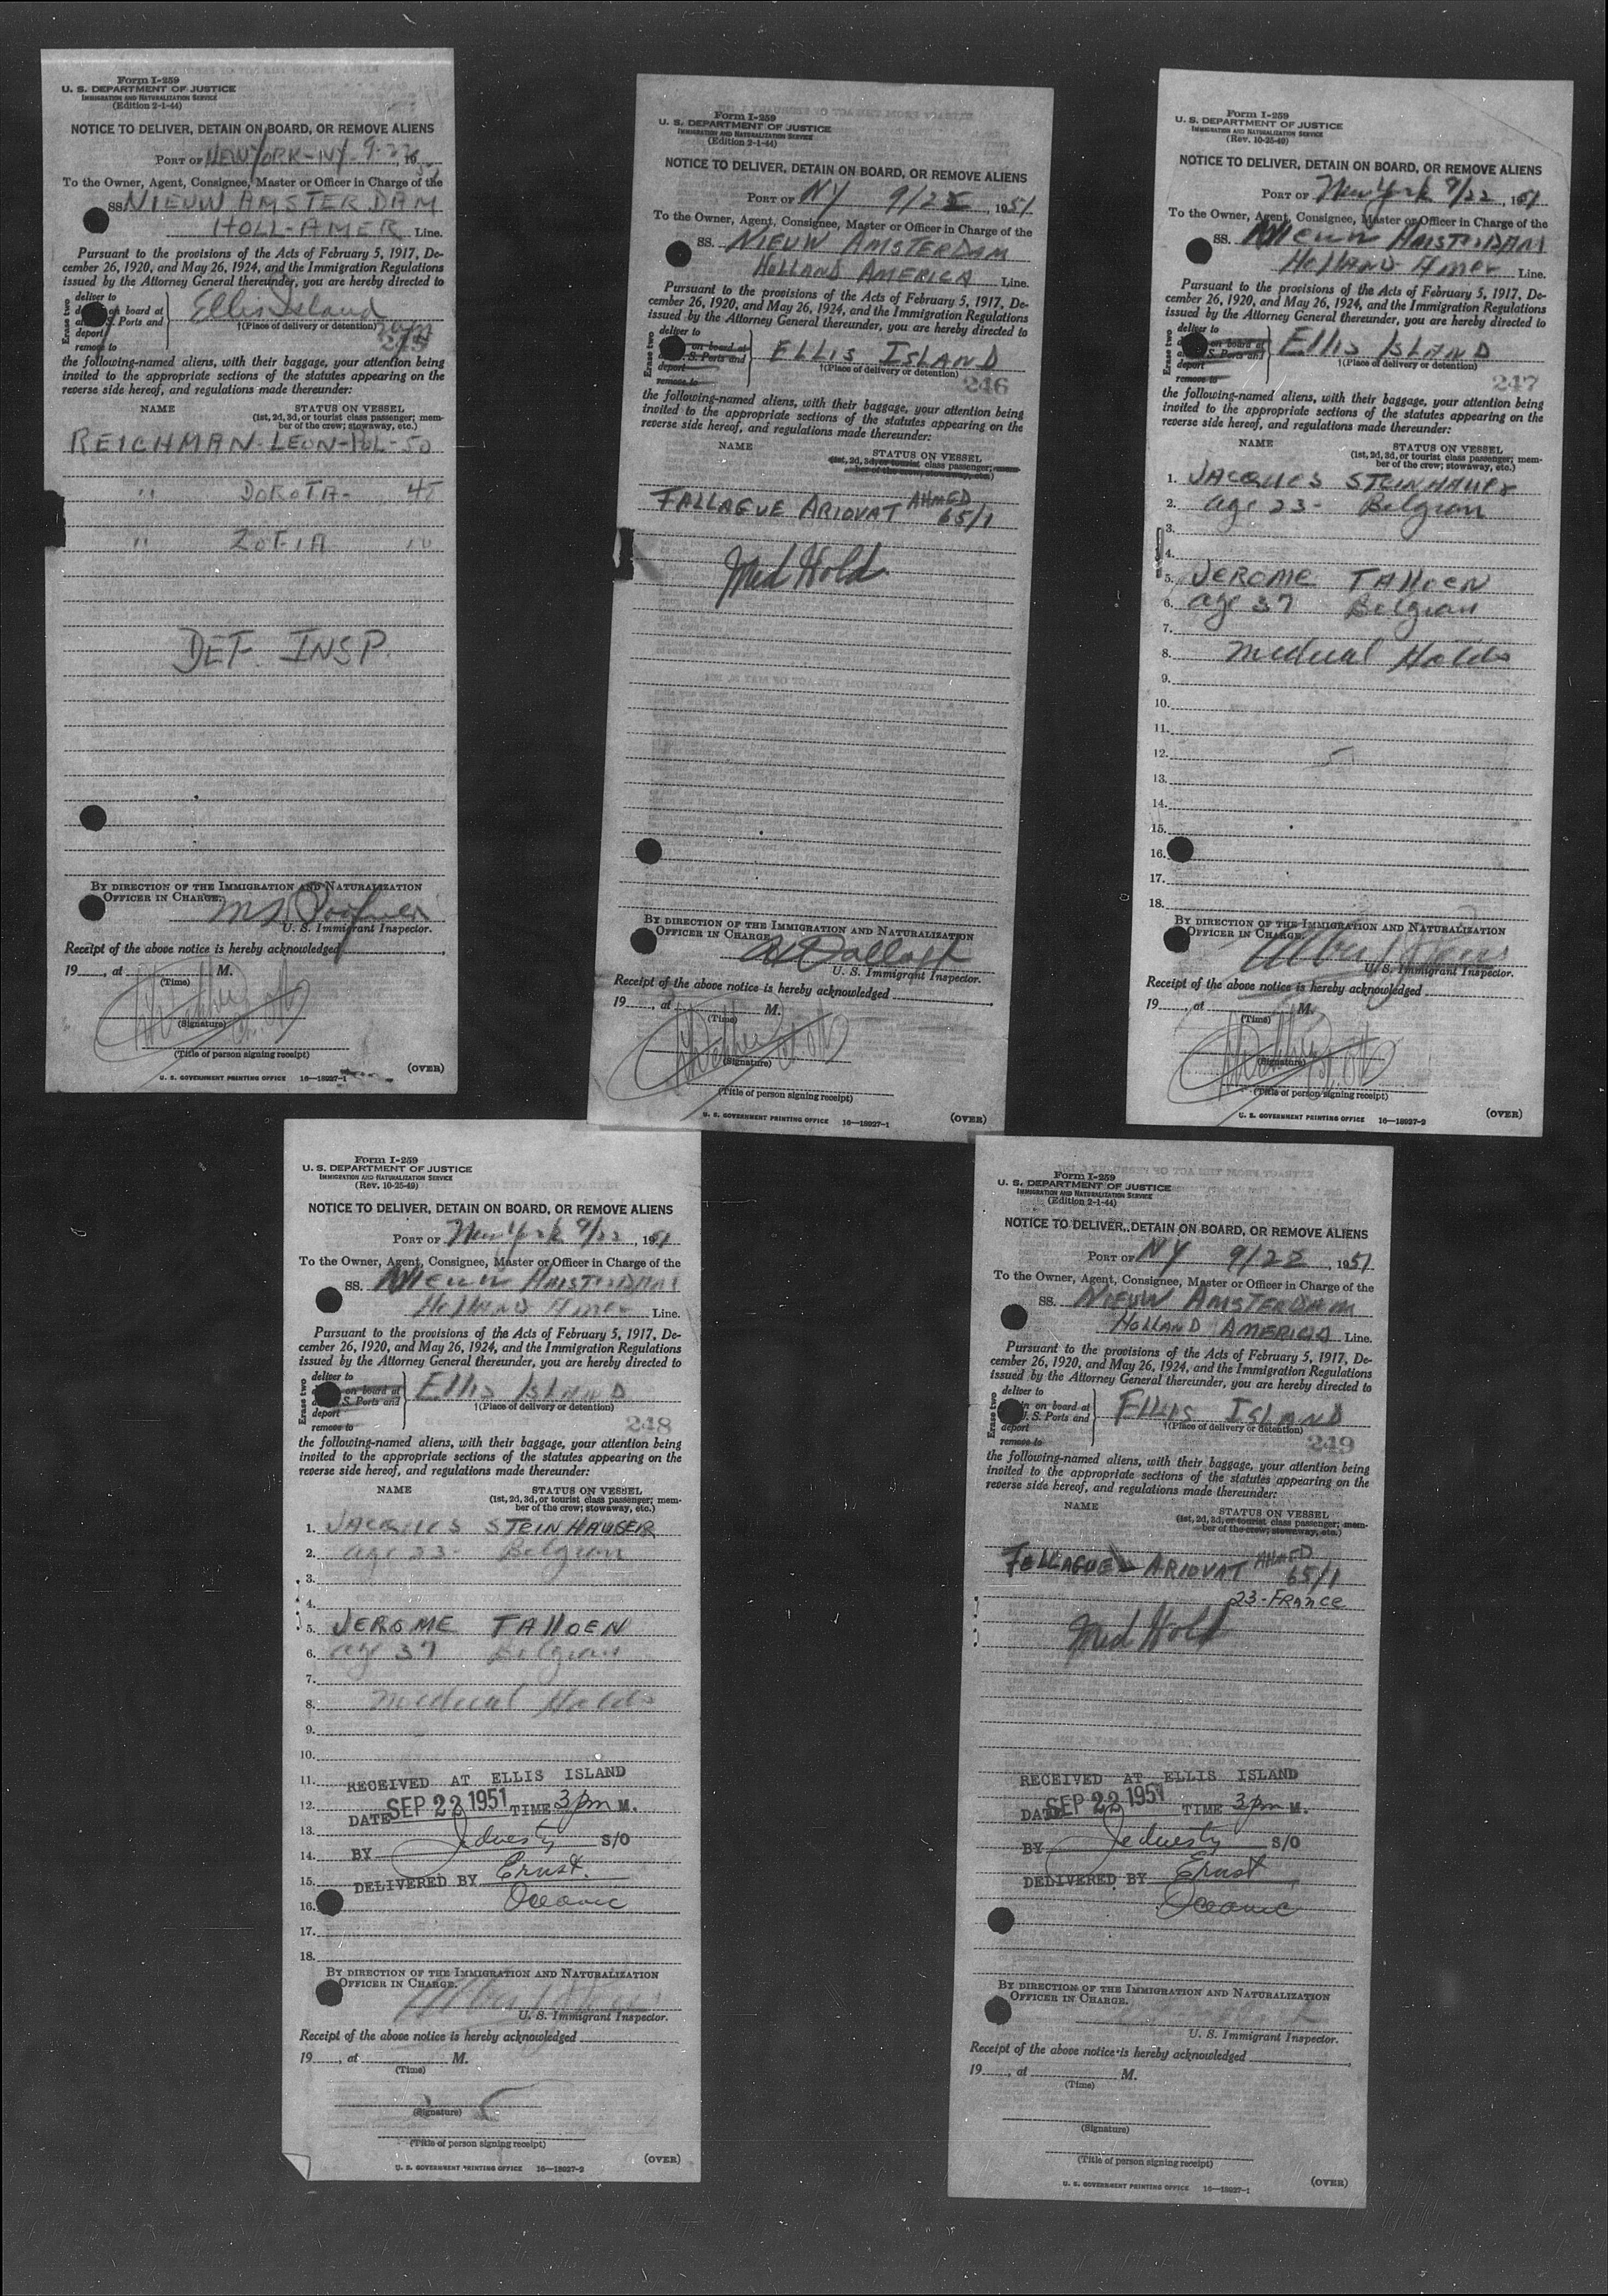 Form I-259
U. S. DEPARTMENT OF JUSTICE
IMMIGRATION AND NATURALIZATION SERVICE
(Edition 2-1-44)
NOTICE TO DELIVER, DETAIN ON BOARD, OR REMOVE ALIENS
PORT OF NEW YORK-NY 9-22, 19
To the Owner, Agent, Consignee, Master or Officer in Charge of the
SS NIEUW AMSTERDAM
HOLL-AMER Line.
Pursuant to the provisions of the Acts of February 5, 1917, De-
cember 26, 1920, and May 26, 1924, and the Immigration Regulations
issued by the Attorney General thereunder, you are hereby directed to
Erase two
deliver to
on board at
S. Ports and
deport
remove to
Ellis Island
†(Place of delivery or detention)
245
the following-named aliens, with their baggage, your attention being
invited to the appropriate sections of the statutes appearing on the
reverse side hereof, and regulations made thereunder:
NAME STATUS ON VESSEL
(1st, 2d, 3d, or tourist class passenger; mem-
ber of the crew; stowaway, etc.)
REICHMAN-LEON-POL-50
" DOROTA-
" ZOFIA
DEF. INSP.
BY DIRECTION OF THE IMMIGRATION AND NATURALIZATION
OFFICER IN CHARGE.
U. S. Immigrant Inspector.
Receipt of the above notice is hereby acknowledged
19, at M.
(Time)
(Signature)
(Title of person signing receipt)
U. S. GOVERNMENT PRINTING OFFICE 16—18927-1
(OVER)
Form I-259
U. S. DEPARTMENT OF JUSTICE
IMMIGRATION AND NATURALIZATION SERVICE
(Edition 2-1-44)
NOTICE TO DELIVER, DETAIN ON BOARD, OR REMOVE ALIENS
PORT OF NY 9/22, 1951
To the Owner, Agent, Consignee, Master or Officer in Charge of the
SS. NIEUW AMSTERDAM
HOLLAND AMERICA Line.
Pursuant to the provisions of the Acts of February 5, 1917, De-
cember 26, 1920, and May 26, 1924, and the Immigration Regulations
issued by the Attorney General thereunder, you are hereby directed to
Erase two
deliver to
on board at
S. Ports and
deport
remove to
ELLIS ISLAND
†(Place of delivery or detention)
246
the following-named aliens, with their baggage, your attention being
invited to the appropriate sections of the statutes appearing on the
reverse side hereof, and regulations made thereunder:
NAME
STATUS ON VESSEL
(1st, 2d, 3d, or tourist class passenger; mem-
ber of the crew; stowaway, etc.)
FALLAGUE ARIOVAT AHMED
65/1
Med Hold
BY DIRECTION OF THE IMMIGRATION AND NATURALIZATION
OFFICER IN CHARGE.
U. S. Immigrant Inspector.
Receipt of the above notice is hereby acknowledged
19, at M.
(Time)
(Signature)
(Title of person signing receipt)
U. S. GOVERNMENT PRINTING OFFICE 16—18927-1
(OVER)
Form I-259
U. S. DEPARTMENT OF JUSTICE
IMMIGRATION AND NATURALIZATION SERVICE
(Rev. 10-25-49)
NOTICE TO DELIVER, DETAIN ON BOARD, OR REMOVE ALIENS
PORT OF New York 9/22, 1951
To the Owner, Agent, Consignee, Master or Officer in Charge of the
SS. Nieuw AMSTERDAM
Holland Amer Line.
Pursuant to the provisions of the Acts of February 5, 1917, De-
cember 26, 1920, and May 26, 1924, and the Immigration Regulations
issued by the Attorney General thereunder, you are hereby directed to
Erase two
deliver to
on board at
S. Ports and
deport
remove to
Ellis ISLAND
†(Place of delivery or detention)
247
the following-named aliens, with their baggage, your attention being
invited to the appropriate sections of the statutes appearing on the
reverse side hereof, and regulations made thereunder:
NAME STATUS ON VESSEL
(1st, 2d, 3d, or tourist class passenger; mem-
ber of the crew; stowaway, etc.)
1. JACQUES STEINHAUER
2. age 23- Belgian
3.
4.
5. JEROME TAHOEN
6. age 37 Belgian
7.
8. Medical Holds
9.
10.
11.
12.
13.
14.
15.
16.
17.
18.
BY DIRECTION OF THE IMMIGRATION AND NATURALIZATION
OFFICER IN CHARGE.
U. S. Immigrant Inspector.
Receipt of the above notice is hereby acknowledged
19, at M.
(Time)
(Signature)
(Title of person signing receipt)
U. S. GOVERNMENT PRINTING OFFICE 16—18927-2
(OVER)
Form I-259
U. S. DEPARTMENT OF JUSTICE
IMMIGRATION AND NATURALIZATION SERVICE
(Rev. 10-25-49)
NOTICE TO DELIVER, DETAIN ON BOARD, OR REMOVE ALIENS
PORT OF New York 9/22, 1951
To the Owner, Agent, Consignee, Master or Officer in Charge of the
SS. Nieuw AMSTERDAM
Holland Amer Line.
Pursuant to the provisions of the Acts of February 5, 1917, De-
cember 26, 1920, and May 26, 1924, and the Immigration Regulations
issued by the Attorney General thereunder, you are hereby directed to
Erase two
deliver to
on board at
S. Ports and
deport
remove to
Ellis ISLAND
†(Place of delivery or detention)
248
the following-named aliens, with their baggage, your attention being
invited to the appropriate sections of the statutes appearing on the
reverse side hereof, and regulations made thereunder:
NAME STATUS ON VESSEL
(1st, 2d, 3d, or tourist class passenger; mem-
ber of the crew; stowaway, etc.)
1. JACQUES STEINHAUGER
2. age 23- Belgian
3.
4.
5. JEROME TAHOEN
6. age 37 Belgian
7.
8. Medical Holds
9.
10.
11. RECEIVED AT ELLIS ISLAND
12. DATE SEP 22 1951 TIME 3 pm M.
13.
14. BY S/O
15. DELIVERED BY Ernst.
16. Oceanic
17.
18.
BY DIRECTION OF THE IMMIGRATION AND NATURALIZATION
OFFICER IN CHARGE.
U. S. Immigrant Inspector.
Receipt of the above notice is hereby acknowledged
19, at M.
(Time)
(Signature)
(Title of person signing receipt)
U. S. GOVERNMENT PRINTING OFFICE 16—18927-2
(OVER)
Form I-259
U. S. DEPARTMENT OF JUSTICE
IMMIGRATION AND NATURALIZATION SERVICE
(Edition 2-1-44)
NOTICE TO DELIVER, DETAIN ON BOARD, OR REMOVE ALIENS
PORT OF NY 9/22, 1951
To the Owner, Agent, Consignee, Master or Officer in Charge of the
SS. NIEUW AMSTERDAM
HOLLAND AMERICA Line.
Pursuant to the provisions of the Acts of February 5, 1917, De-
cember 26, 1920, and May 26, 1924, and the Immigration Regulations
issued by the Attorney General thereunder, you are hereby directed to
Erase two
deliver to
in on board at
S. Ports and
deport
remove to
ELLIS ISLAND
†(Place of delivery or detention)
249
the following-named aliens, with their baggage, your attention being
invited to the appropriate sections of the statutes appearing on the
reverse side hereof, and regulations made thereunder:
NAME
STATUS ON VESSEL
(1st, 2d, 3d, or tourist class passenger; mem-
ber of the crew; stowaway, etc.)
FALLAGUE ARIOVAT AHMED
65/1
23-FRANCE
Med Hold
RECEIVED AT ELLIS ISLAND
DATE SEP 22 1951 TIME 3 pm M.
BY S/O
DELIVERED BY Ernst
Oceanic
BY DIRECTION OF THE IMMIGRATION AND NATURALIZATION
OFFICER IN CHARGE.
U. S. Immigrant Inspector.
Receipt of the above notice is hereby acknowledged
19, at M.
(Time)
(Signature)
(Title of person signing receipt)
U. S. GOVERNMENT PRINTING OFFICE 16—18927-1
(OVER)